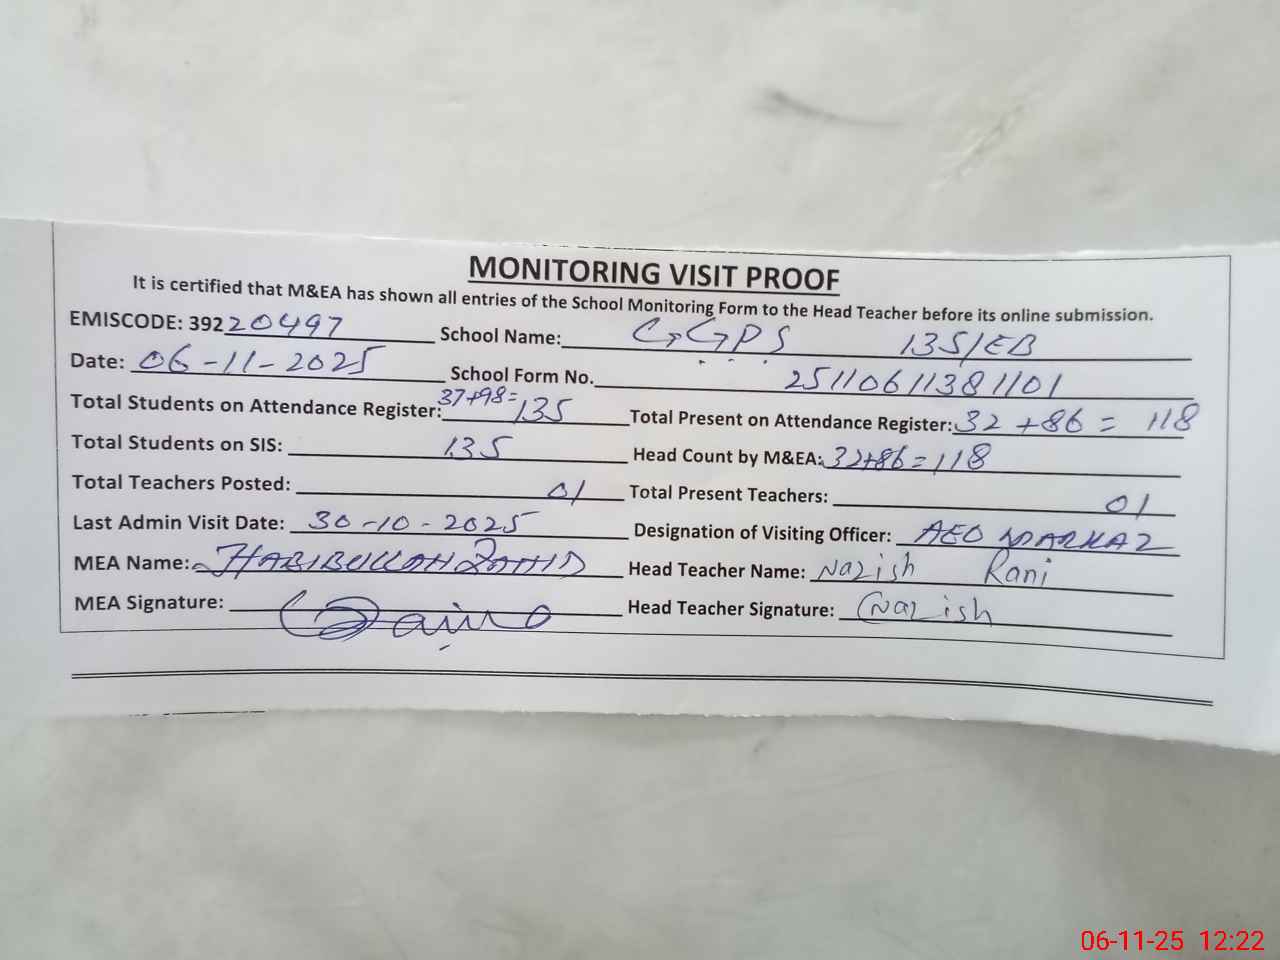 MONITORING VISIT PROOF
It is certified that M&EA has shown all entries of the School Monitoring Form to the Head Teacher before its online submission.
EMISCODE: 39220497 School Name: GGPS 135/EB
Date: 06-11-2025 School Form No. 25110611381101
Total Students on Attendance Register: 37+98=135 Total Present on Attendance Register: 32+86= 118
Total Students on SIS: 135 Head Count by M&EA: 32+86=118
Total Teachers Posted: 01 Total Present Teachers: 01
Last Admin Visit Date: 30-10-2025 Designation of Visiting Officer: AEO MARKAZ
MEA Name: HABIBULLAH ZAHID Head Teacher Name: Nazish Rani
MEA Signature: Head Teacher Signature: Nazish
06-11-25 12:22